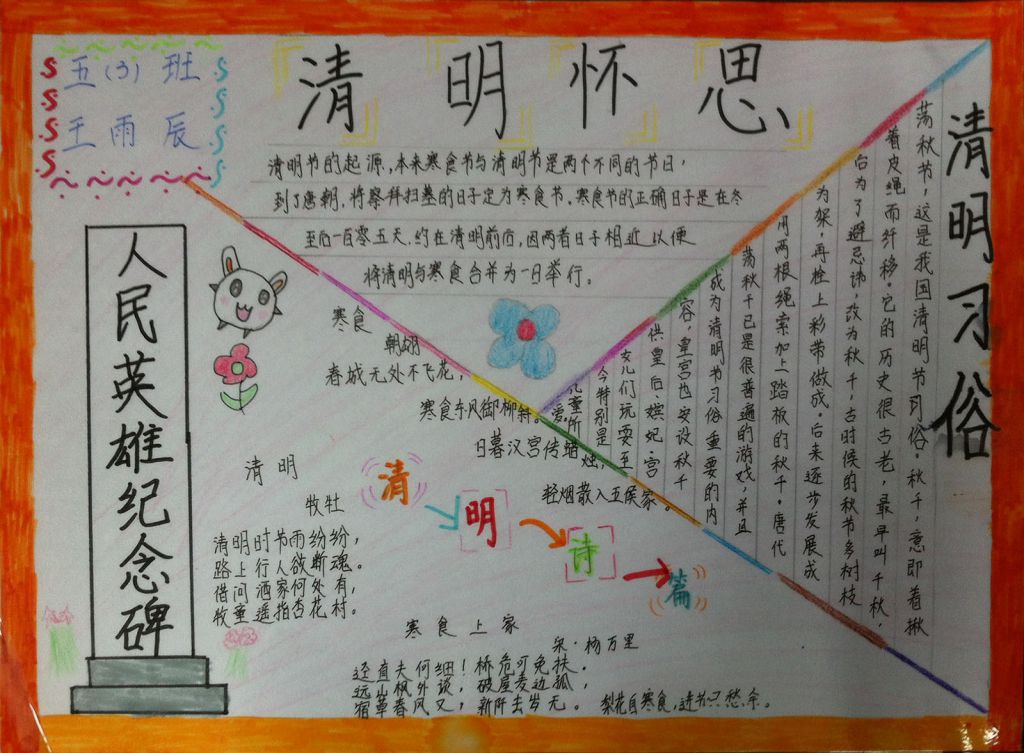 五(3)班
王雨辰
清明怀思
清明节的起源,本来寒食节与清明节是两个不同的节日,
到了唐朝,将祭拜扫墓的日子定为寒食节。寒食节的正确日子是在冬
至后一百零五天,约在清明前后,因两者日子相近以便
将清明与寒食合并为一日举行。
清明习俗
荡秋节,这是我国清明节习俗。秋千,意即着揪
着皮绳而纤移。它的历史很古老,最早叫千秋,
后为了避忌讳,改为秋千,古时候的秋节多树枝
为架,再栓上彩带做成。后来逐步发展成
用两根绳索加上踏板的秋千。唐代
荡秋千已是很普遍的游戏,并且
成为清明节习俗重要的内
容,皇宫也安设秋千
供皇后、嫔妃、宫
女儿们玩耍至
今特别是
儿童所
爱。
人民英雄纪念碑
寒食
朝翃
春城无处不飞花,
寒食东风御柳斜。
日暮汉宫传蜡烛,
轻烟散入五侯家。
清明诗篇
清明
牧牡
清明时节雨纷纷,
路上行人欲断魂。
借问酒家何处有,
牧童遥指杏花村。
寒食上冢
宋·杨万里
迳直夫何细!桥危可免扶。
远山枫外淡,破屋麦边孤,
宿草春风又,新阡去岁无。梨花自寒食,进节只愁余。